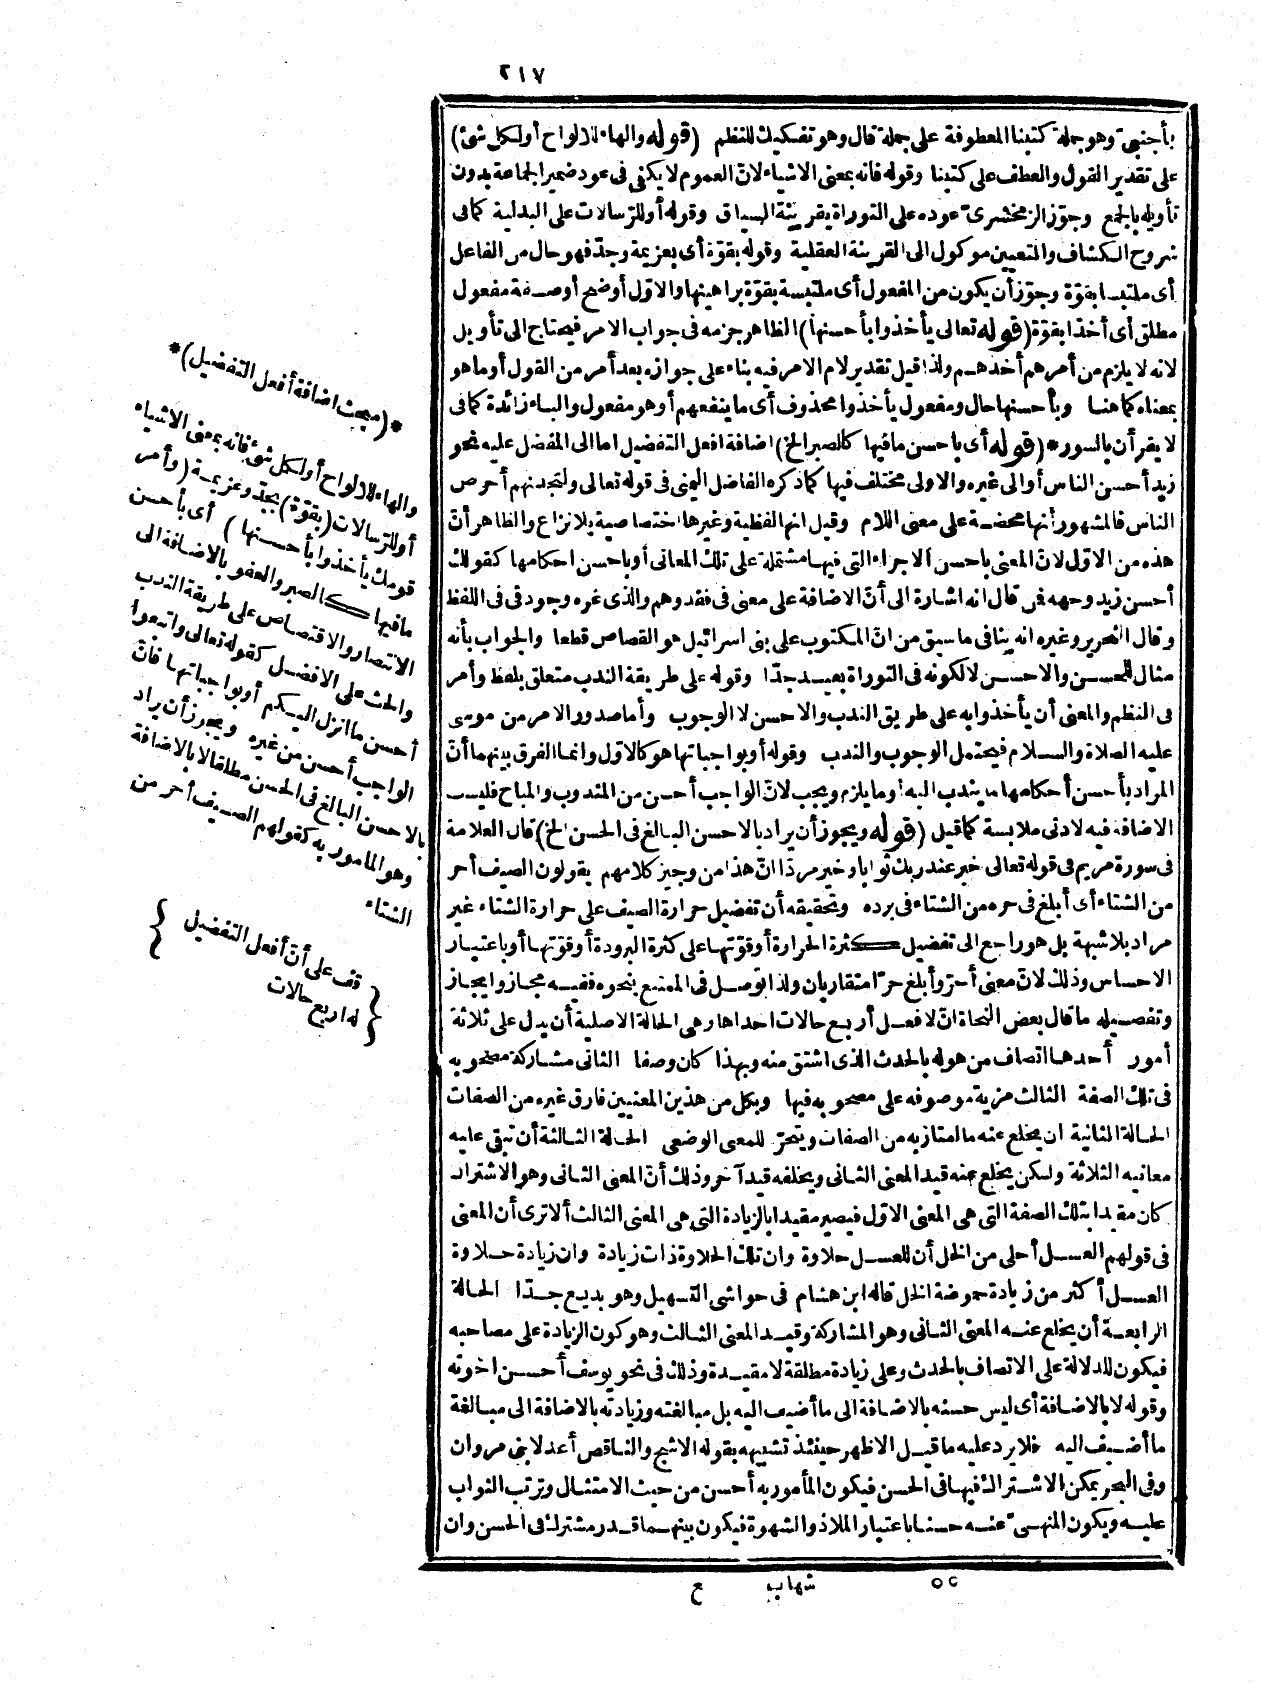 ٢١٧
بأجنبيّ وهو جملة كتبنا المعطوفة على جملة قال وهو تفكيك للنظم (قوله والهاء للالواح أولكل شئ)
على تقدير القول والعطف على كتبنا وقوله فانه بمعنى الاشياء لانّ العموم لا يكفى فى عود ضمير الجماعة بدون
تأويله بالجمع وجوّز الزمخشرىّ عوده على التوراة بقرينة السياق وقوله أوللرسالات على البدلية كما فى
شروح الكشاف والتعيين موكول الى القرينة العقلية وقوله بقوّة أى بعزيمة وجدّ فهو حال من الفاعل
أى ملتبسا بقوّة وجوّز أن يكون من المفعول أى ملتبسة بقوّة براهينها والاوّل أوضح أوصفة مفعول
مطلق أى أخذا بقوّة (قوله تعالى يأخذوا بأحسنها) الظاهر جزمه فى جواب الامر فيحتاج الى تأويل
لانه لا يلزم من أمرهم أخذهم ولذا قيل تقدير لام الامر فيه بناء على جوازه بعد أمر من القول أوما هو
بمعناه كما هنا وبأحسنها حال ومفعول يأخذوا محذوف أى ما ينفعهم أوهو مفعول والباء زائدة كما فى
لا يقرأن بالسور * (قوله أى باحسن ما فيها كالصبر الخ) اضافة افعل التفضيل اما الى المفضل عليه نحو
زيد أحسن الناس أوالى غيره والاولى مختلف فيها كما ذكره الفاضل اليمنى فى قوله تعالى ولتجدنهم أحرص
الناس فالمشهور أنها محضة على معنى اللام وقيل انها لفظية وغيرها اختصاصية بلا نزاع والظاهر أنّ
هذه من الاوّل لانّ المعنى باحسن الاجزاء التى فيها مشتملة على تلك المعانى أوباحسن احكامها كقولك
أحسن زيد وجهه فمن قال انه اشارة الى أنّ الاضافة على معنى فى فقد وهم والذى غره وجود فى فى اللفظ
وقال النحرير وغيره انه ينافى ما سبق من انّ المكتوب على بنى اسرائيل هو القصاص قطعا والجواب بأنه
مثال للحسن والاحسن لا لكونه فى التوراة بعيد جدّا وقوله على طريقة الندب متعلق بلفظ وأمر
فى النظم والمعنى أن يأخذوا به على طريق الندب والاحسن لا الوجوب وأما صدور الامر من موسى
عليه الصلاة والسلام فيحتمل الوجوب والندب وقوله أوبواجباتها هو كالاوّل وانما الفرق بينهما أنّ
المراد بأحسن أحكامها ما يندب اليه أوما يلزم ويجب لانّ الواجب أحسن من المندوب والمباح فليست
الاضافة فيه لادنى ملابسة كما قيل (قوله ويجوز أن يراد بالاحسن البالغ فى الحسن الخ) قال العلامة
فى سورة مريم فى قوله تعالى خير عند ربك ثوابا وخير مردّا انّ هذا من وجيز كلامهم يقولون الصيف أحر
من الشتاء أى أبلغ فى حره من الشتاء فى برده وتحقيقه أن تفضيل حرارة الصيف على حرارة الشتاء غير
مراد بلا شبهة بل هو راجع الى تفضيل كثرة الحرارة أوقوّتها على كثرة البرودة أوقوّتها أوباعتبار
الاحساس وذلك لانّ معنى أحرّ وأبلغ حرّا متقاربان ولذا توصل فى الممتنع بنحوه ففيه مجاز وايجاز
وتفصيله ما قال بعض النحاة انّ لافعل أربع حالات احداها وهى الحالة الاصلية أن يدل على ثلاثة
أمور أحدها اتصاف من هو له بالحدث الذى اشتق منه وبهذا كان وصفا الثانى مشاركة مصحوبه
فى تلك الصفة الثالث مزية موصوفه على مصحوبه فيها وبكل من هذين المعنيين فارق غيره من الصفات
الحالة الثانية ان يخلع عنه ما امتاز به من الصفات ويتجرّد للمعنى الوضعى الحالة الثالثة أن تبقى عليه
معانيه الثلاثة ولكن يخلع عنه قيد المعنى الثانى ويخلفه قيد آخر وذلك أنّ المعنى الثانى وهو الاشتراك
كان مقيدا بتلك الصفة التى هى المعنى الاوّل فيصير مقيدا بالزيادة التى هى المعنى الثالث ألا ترى أن المعنى
فى قولهم العسل أحلى من الخل أن للعسل حلاوة وان تلك الحلاوة ذات زيادة وان زيادة حلاوة
العسل أكثر من زيادة حموضة الخل قاله ابن هشام فى حواشى التسهيل وهو بديع جدّا الحالة
الرابعة أن يخلع عنه المعنى الثانى وهو المشاركة وقيد المعنى الثالث وهو كون الزيادة على مصاحبه
فيكون للدلالة على الاتصاف بالحدث وعلى زيادة مطلقة لا مقيدة وذلك فى نحو يوسف أحسن اخوته
وقوله لا بالاضافة أى ليس حسنه بالاضافة الى ما أضيف اليه بل مبالغته وزيادته بالاضافة الى مبالغة
ما أضيف اليه فلا يرد عليه ما قيل الاظهر حينئذ تشبيهه بقوله الاشج والناقص أعدلا بنى مروان
وفى البحر يمكن الاشتراك فيها فى الحسن فيكون المأمور به أحسن من حيث الامتثال وترتب الثواب
عليه ويكون المنهىّ عنه حسنا باعتبار الملاذ والشهوة فيكون بينهما قدر مشترك فى الحسن وان
*(مبحث اضافة أفعل التفضيل)*
والهاء للالواح أولكل شئ فانه بمعنى الاشياء
أوللرسالات (بقوّة) بجدّ وعزيمة (وأمر
قومك يأخذوا بأحسنها) أى بأحسن
ما فيها كالصبر والعفو بالاضافة الى
الانتصار والاقتصاص على طريقة الندب
والحث على الافضل كقوله تعالى واتبعوا
أحسن ما انزل اليكم أوبواجباتها فانّ
الواجب أحسن من غيره ويجوز أن يراد
بالاحسن البالغ فى الحسن مطلقا لا بالاضافة
وهو المأمور به كقولهم الصيف أحر من
الشتاء
{ قف على أنّ أفعل التفضيل
له اربع حالات }
٥٥ شهاب ع